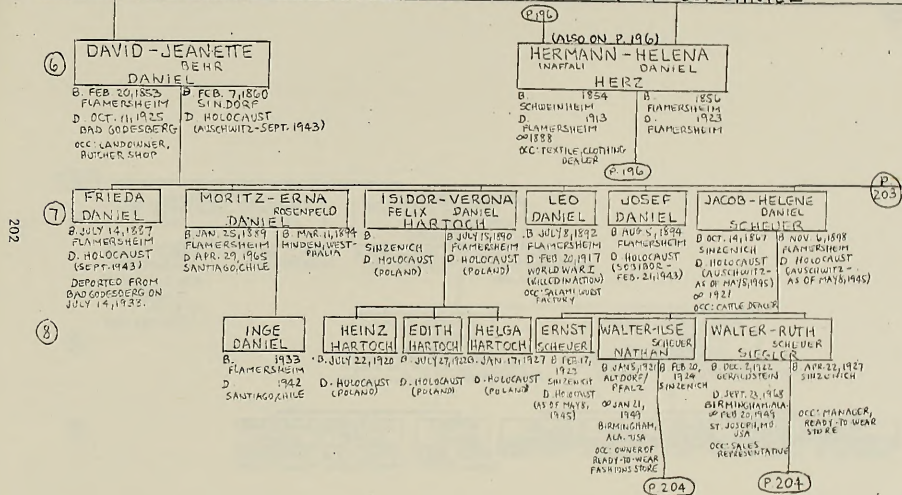 P.196
(ALSO ON P. 196)
6
DAVID - JEANETTE
BEHR
DANIEL
B. FEB 20, 1853
FLAMERSHEIM
D. OCT. 11, 1925
BAD GODESBERG
OCC: LANDOWNER,
BUTCHER SHOP
B FEB. 7, 1860
SINDORF
D. HOLOCAUST
(AUSCHWITZ-SEPT. 1943)
HERMANN - HELENA
(NAFTALI DANIEL
HERZ
B. 1854
SCHWEINHEIM
D. 1913
FLAMERSHEIM
∞ 1888
OCC: TEXTILE, CLOTHING
DEALER
B. 1856
FLAMERSHEIM
D. 1923
FLAMERSHEIM
P.196
P
203
202
7
FRIEDA
DANIEL
B. JULY 14, 1887
FLAMERSHEIM
D. HOLOCAUST
(SEPT. 1943)
DEPORTED FROM
BAD GODESBERG ON
JULY 14, 1933.
MORITZ - ERNA
ROSENFELD
DANIEL
B JAN. 25, 1889
FLAMERSHEIM
D APR. 29, 1965
SANTIAGO, CHILE
B MAR. 11, 1894
MINDEN, WEST-
PHALIA
ISIDOR - VERONA
FELIX DANIEL
HARTOCH
B.
SINZENICH
D. HOLOCAUST
(POLAND)
B JULY 15, 1890
FLAMERSHEIM
D HOLOCAUST
(POLAND)
LEO
DANIEL
B JULY 8, 1892
FLAMERSHEIM
D FEB 20, 1917
WORLD WAR I
(KILLED IN ACTION)
OCC: SALAMI WURST
FACTORY
JOSEF
DANIEL
B AUG 5, 1894
FLAMERSHEIM
D HOLOCAUST
(SOBIBOR -
FEB. 21, 1943)
JACOB - HELENE
DANIEL
SCHEUER
B OCT. 14, 1867
SINZENICH
D. HOLOCAUST
(AUSCHWITZ -
AS OF MAY 8, 1945)
∞ 1921
OCC: CATTLE DEALER
B NOV. 6, 1898
FLAMERSHEIM
D HOLOCAUST
(AUSCHWITZ -
AS OF MAY 8, 1945)
8
INGE
DANIEL
B. 1933
FLAMERSHEIM
D. 1942
SANTIAGO, CHILE
HEINZ
HARTOCH
B. JULY 22, 1920
D. HOLOCAUST
(POLAND)
EDITH
HARTOCH
B. JULY 27,
D. HOLOCAUST
(POLAND)
HELGA
HARTOCH
B. JAN. 17, 1927
D. HOLOCAUST
(POLAND)
ERNST
SCHEUER
B FEB. 17,
SINZENICH
D. HOLOCAUST
(AS OF MAY 8,
1945)
WALTER - ILSE
SCHEUER
NATHAN
B JAN 5, 1921
ALTDORF/
PFALZ
∞ JAN 21,
1949
BIRMINGHAM,
ALA. USA
OCC: OWNER OF
READY-TO-WEAR
FASHIONS STORE
B FEB 20,
1924
SINZENICH
P 204
WALTER - RUTH
SCHEUER
SIEGLER
B DEC. 2, 1922
GEROLDSTEIN
D. SEPT. 23, 1968
BIRMINGHAM, ALA.
∞ FEB 20, 1949
ST. JOSEPH, MO
USA
OCC: SALES
REPRESENTATIVE
B APR. 22, 1927
SINZENICH
OCC: MANAGER,
READY-TO WEAR
STORE
P 204